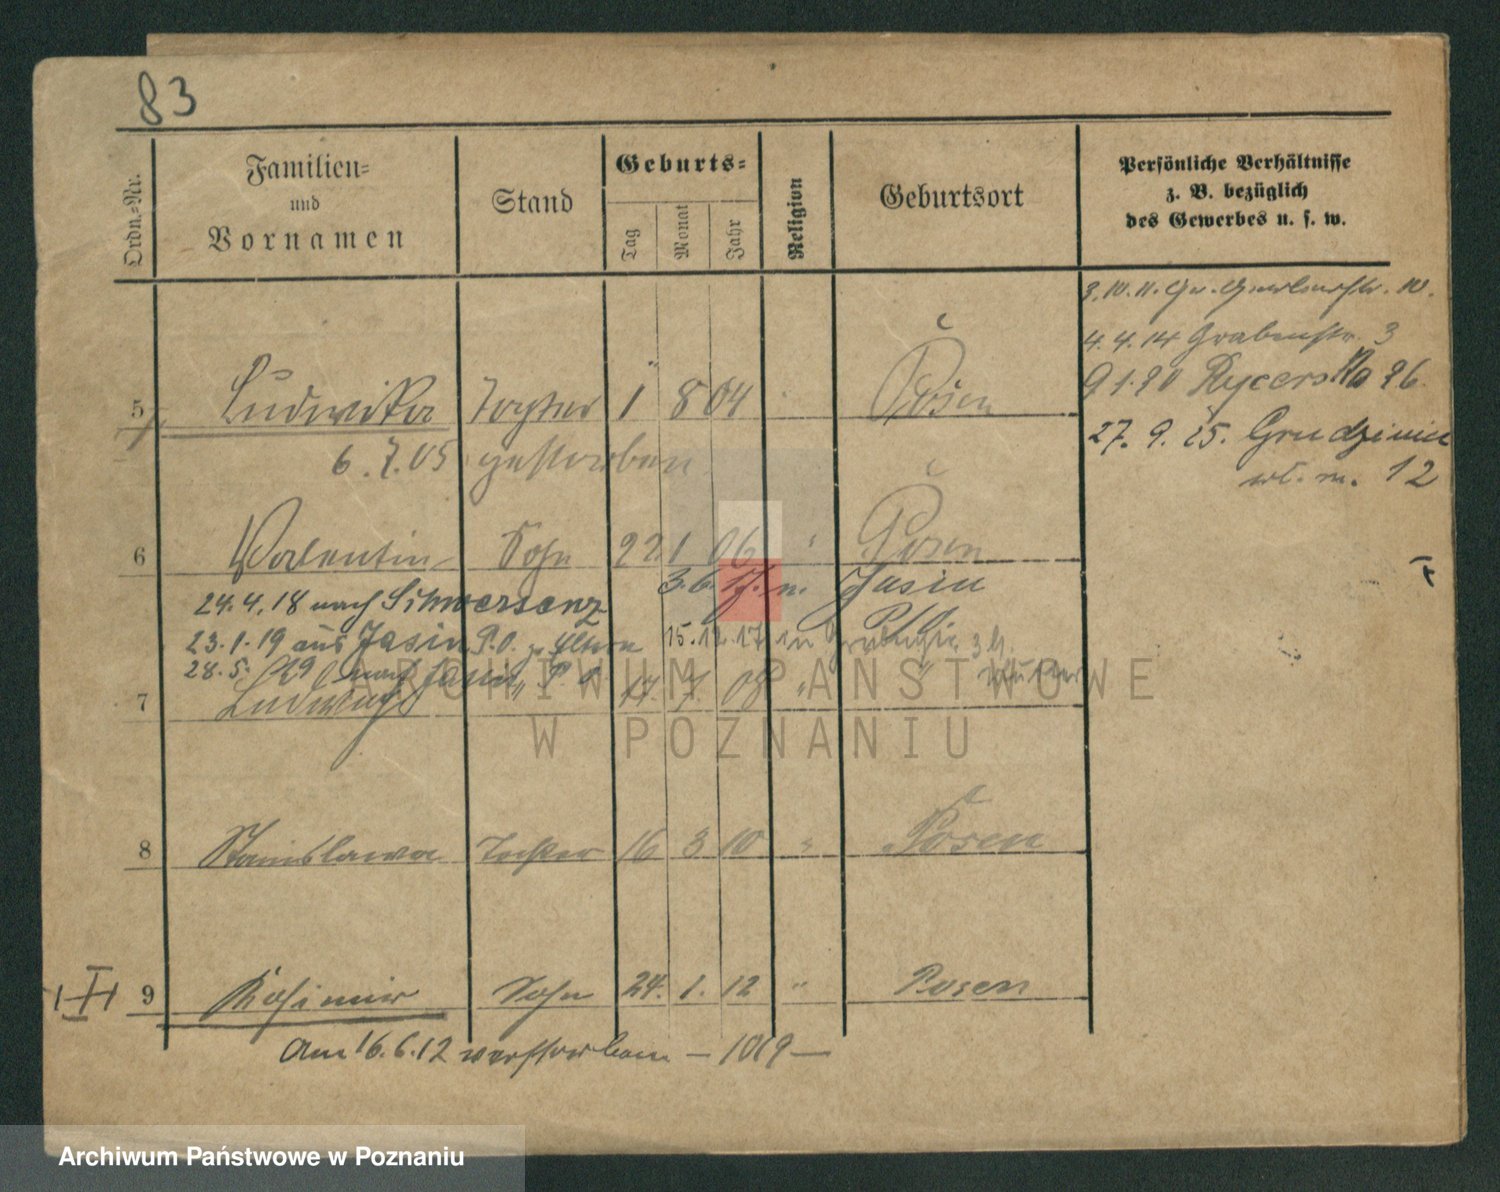 83
Ordn.-Nr.
Familien-
und
Vornamen
Stand
Geburts-
Tag
Monat
Jahr
Religion
Geburtsort
Persönliche Verhältnisse
z. B. bezüglich
des Gewerbes u. s. w.
3. 10. 11. Gr. Gerberstr. 10.
4. 4. 14 Grabenstr. 3
9 1. 20 Rycerska 26.
27. 9. 25.
12
5 Ludwika Tochter 1 8 04 Posen
6. 7. 05 gestorben
6 Valentin Sohn 22 1 06 " Posen
24. 4. 18 nach Schwersenz 3. 6. n. Jasin
23. 1. 19 aus Jasin P. O. z. Eltern 15. 12. 17. in
28. 5. 19 nach Jasin P. O.
7 Ludwig " 7. 08 " "
8 Stanislawa Tochter 16 3 10 " Posen
9 Kasimir Sohn 24. 1. 12 " Posen
am 16. 6. 12 verstorben —
ARCHIWUM PAŃSTWOWE
W POZNANIU
Archiwum Państwowe w Poznaniu